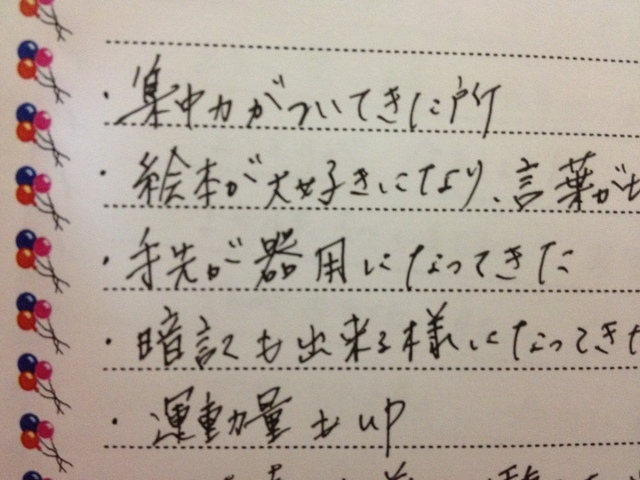 ・集中力がついてきた所
・絵本が大好きになり、言葉が
・手先が器用になってきた
・暗記も出来る様になってきた
・運動量もup